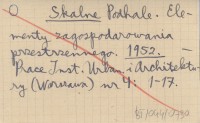 O Skalne Podhale. Ele-
menty zagospodarowania
przestrzennego. 1952. -
Prace Inst. Urban. i Architektu-
ry (Warszawa) nr 4: 1-17.